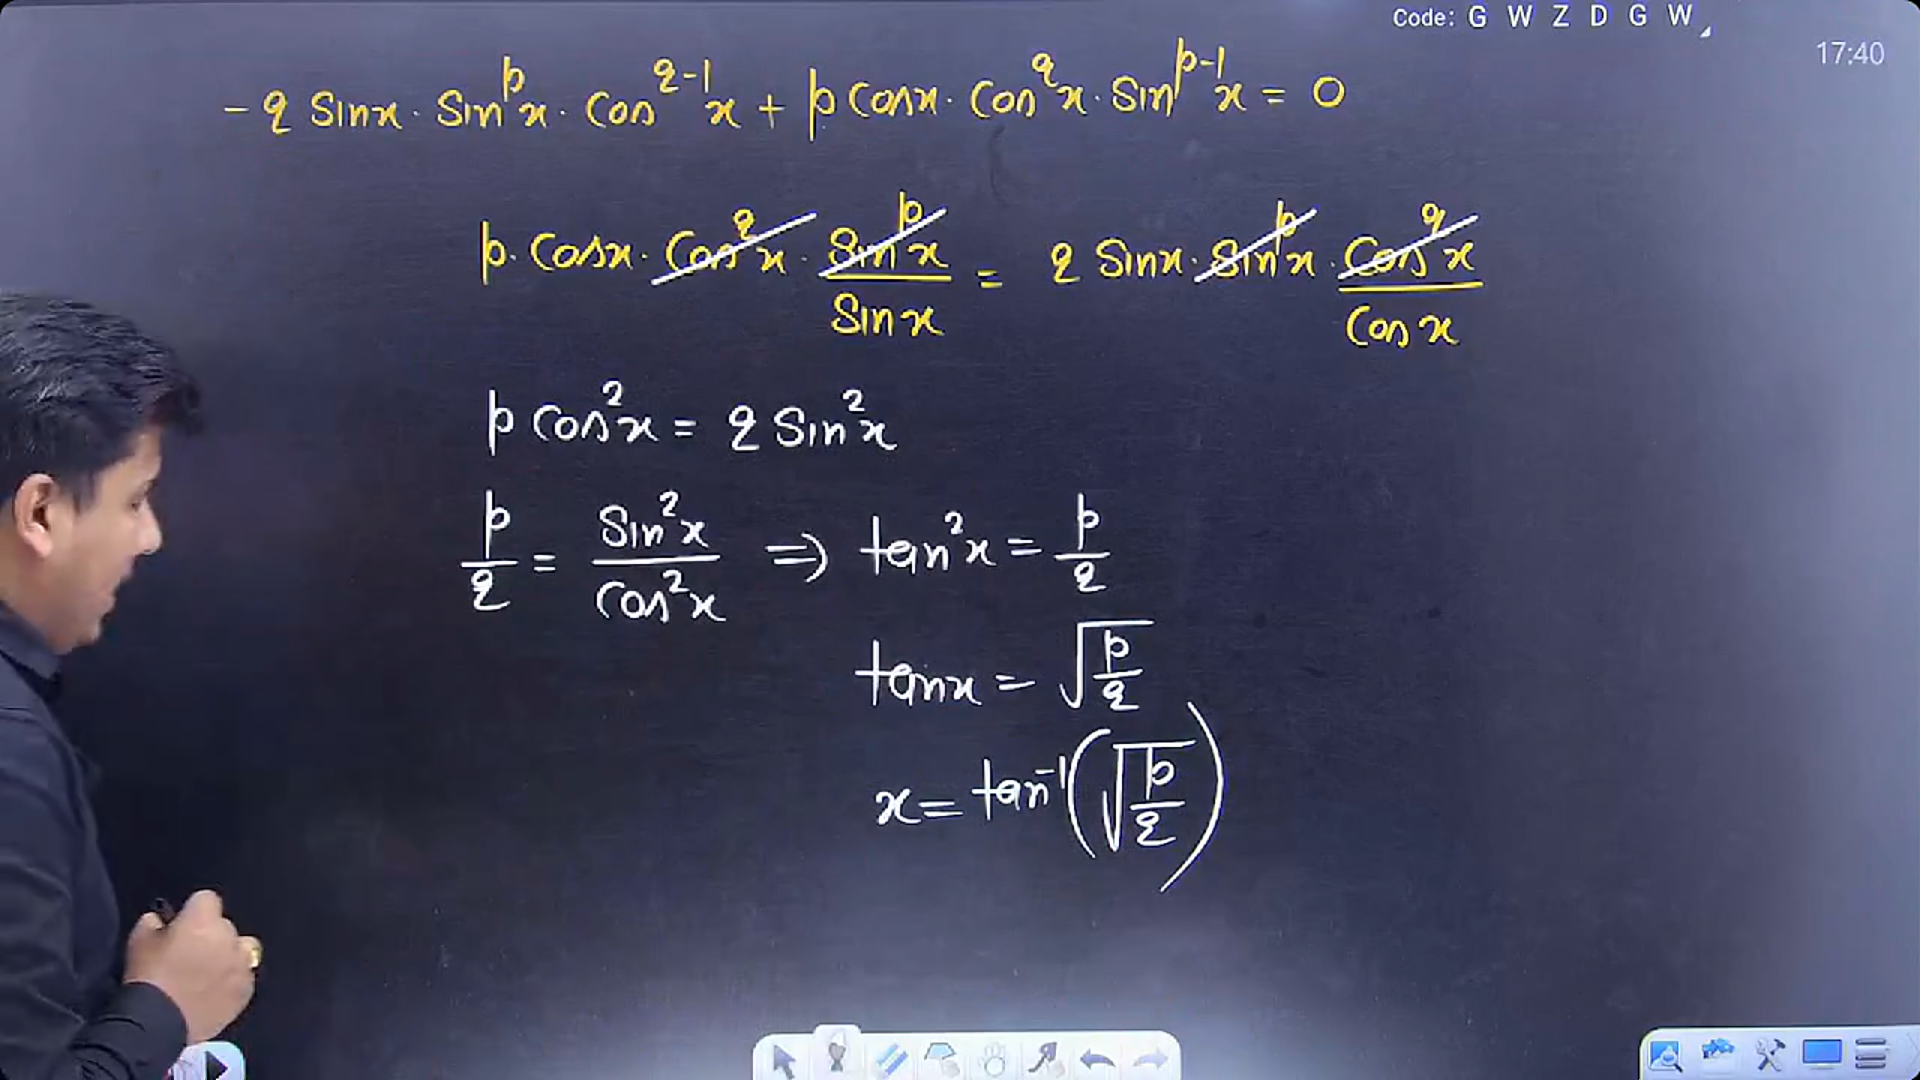 Code: G W Z D G W
17:40
- q Sinx · Sin^p x · Cos^{q-1} x + p Cosx · Cos^q x · Sin^{p-1} x = 0
p · Cosx · Cos^q x · Sin^p x / Sinx = q Sinx · Sin^p x · Cos^q x / Cosx
p Cos²x = q Sin²x
p/q = Sin²x / Cos²x ⇒ tan²x = p/q
tanx = √(p/q)
x = tan⁻¹(√(p/q))